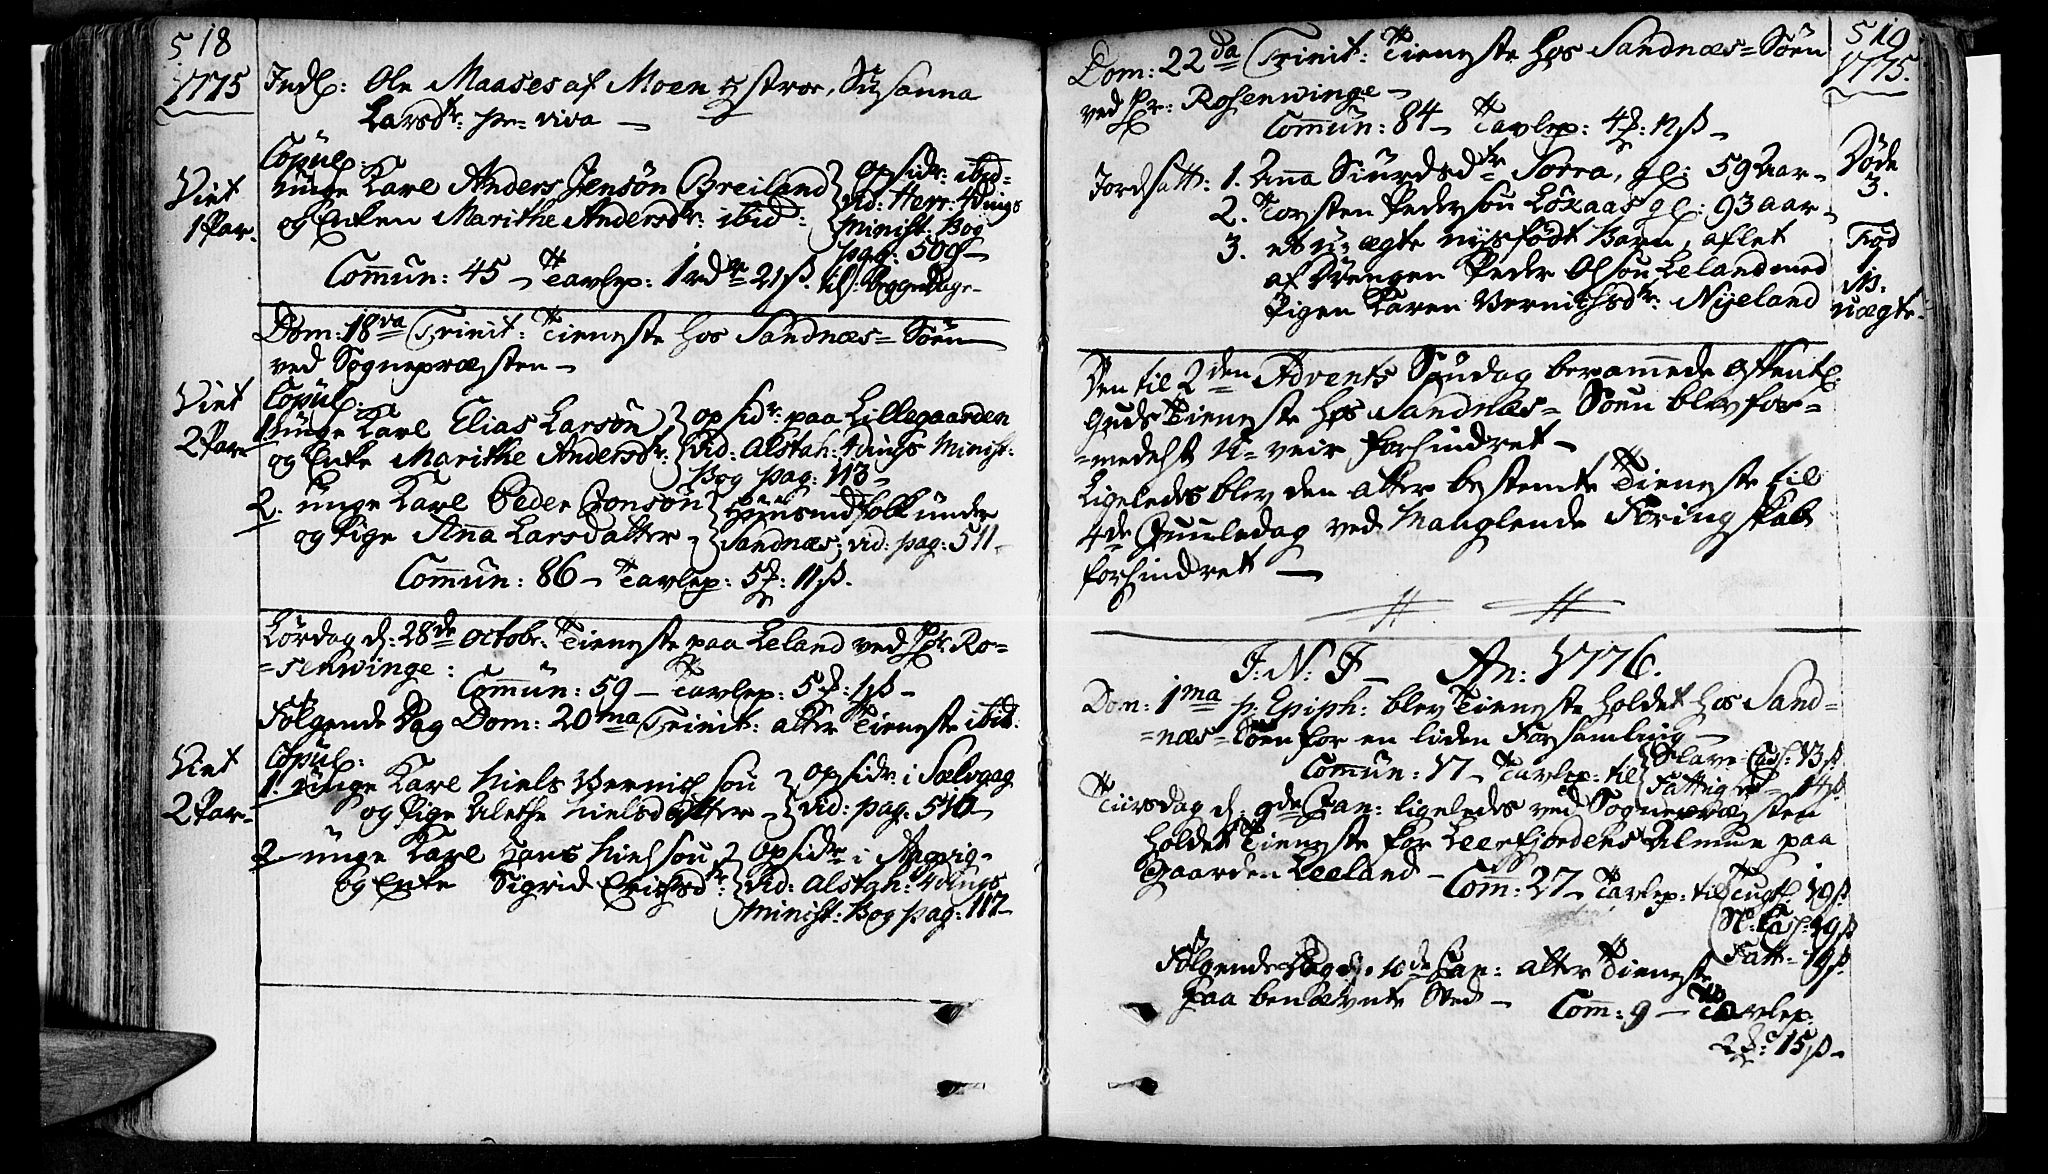 518
1775
Indl: Ole Maases af Moen
Susanna
Larsdr: pr viva —
Copul:
Viet
1 Par.
unge Karl Anders Jensøn Breiland
og Enken Marithe Andersdr: ibid:
op sidr: ibid=
vid: Herr: 4dings
Minist: Bog
pag: 509—
Commun: 45 — Tavlep: 1 rdr 21 ß.
Dom: 18va Trinit: Tieneste hos Sandnæs=Søen
ved Sognepræsten —
Viet
2 Par
Copul:
1. unge Karl Elias Larsøn
og Enke Marithe Andersdr:
op sidr: paa Lillegaarden
vid: Alstah: 4dings Minist:
Bog pag: 113—
2. unge Karl Peder Jonsøn
og Pige Anna Larsdatter —
Huusmdfolk under
Sandnæs; vid: pag: 511—
Commun: 86 — Tavlep: 5 : 11 ß.
Lørdag d: 28de Octobr: Tieneste paa Leland ved Pr: Ro=
=senwinge:
Commun: 59 — Tavlep: 5 : 1 ß —
Følgende Dag Dom: 20ma Trinit: atter Tieneste ibid:
Viet
2 Par—
Copul:
1. unge Karl Niels Bernichsøn
og Pige Alethe Nielsdatter —
op sidr: i Sælvgag
vid: pag: 516—
2 unge Karl Hans Nielsøn
og Enke Sigrid Erichsdr:
op sidr i Aagvig—
vid: Alstah: 4dings
Minist: Bog pag: 117—
519
1775.
Dom: 22da Trinit: Tieneste hos Sandnæs=Søen
ved Pr: Rosenwinge —
Commun: 84 — Tavlep: 4 : 12 ß —
Døde
3.
Jordsatt: 1. Anna Siurdsdtr Sorra, gl: 59 Aar—
2. Torsten Pedersøn Løkaas gl: 93 aar—
3. et u-ægte nysfødt Barn, aflet
af Drengen Peder Olsøn Leland med
Pigen Karen Bernichsdr: Nyeland
Fød
1
uægte.
Den til 2den Advents Søndag berammede Offentl:
Guds Tieneste hos Sandnæs=Søen blev for=
=medelst U=veir forhindret —
Ligeledes blev den atter bestemte Tieneste til
4de Juuledag ved Manglende Føringskab
forhindret —
J: N: J — An: 1776.
Dom: 1ma p: Epiph: blev Tieneste holdet hos Sand=
=næs=Søen for en liden Forsamling —
Commun: 17 — Tavlep: til Slave Cass: 13 ß
Fattig 14 ß
Tiirsdag d: 9de Jan: ligeledes ved Sognepræsten
holdet Tieneste for Leerfjordens Almue paa
Gaarden Leeland —
Com: 27 — Tavlep: til Tugt: 19 ß
Cass: 19 ß
Fatt: 19 ß.
Følgende Dag d: 10de Jan: atter Tieneste
paa benævnte Sted —
Com: 9 — Tavlep:
2 : 15 ß —